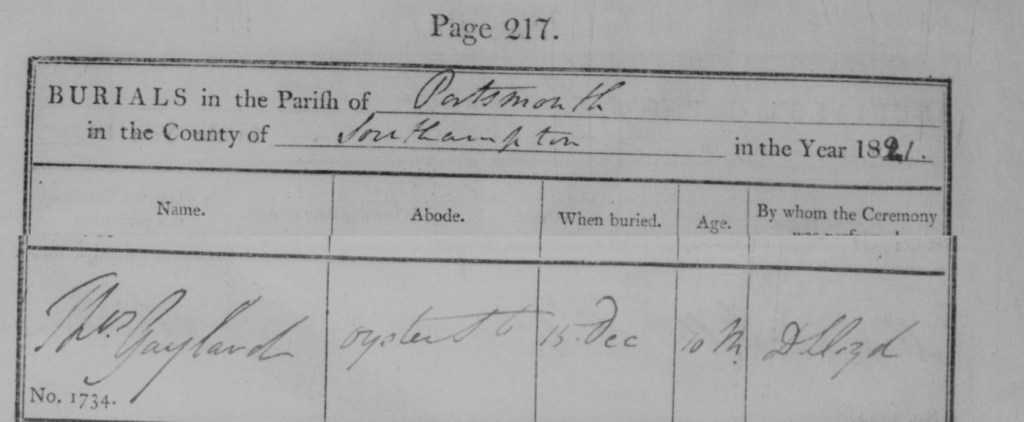 Page 217.
BURIALS in the Pariſh of Portsmouth
in the County of Southampton in the Year 1821.
Name. Abode. When buried. Age. By whom the Ceremony
Thos. Gayland oyster St 15 Dec 10 M. D Lloyd
No. 1734.